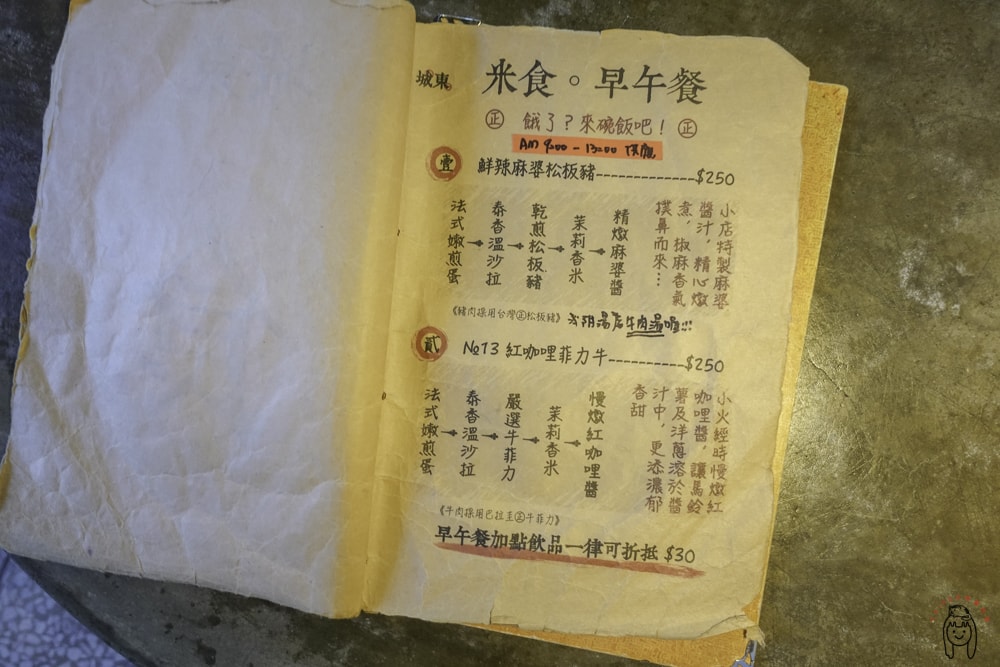 城東
米食。早午餐
正 餓了?來碗飯吧! 正
AM 9:00 - 13:00 供應
壹 鮮辣麻婆松板豬-------------$250
法式嫩煎蛋
泰香溫沙拉
乾煎松板豬
茉莉香米
精燉麻婆醬
小店特製麻婆
醬汁,精心燉
煮,椒麻香氣
撲鼻而來…
《豬肉採用台灣正松板豬》
牛肉湯啦!!!
貳 №13 紅咖哩菲力牛----------$250
法式嫩煎蛋
泰香溫沙拉
嚴選牛菲力
茉莉香米
慢燉紅咖哩醬
小火經時慢燉紅
咖哩醬,讓馬鈴
薯及洋蔥溶於醬
汁中,更添濃郁
香甜
《牛肉採用巴拉圭正牛菲力》
早午餐加點飲品一律可折抵 $30